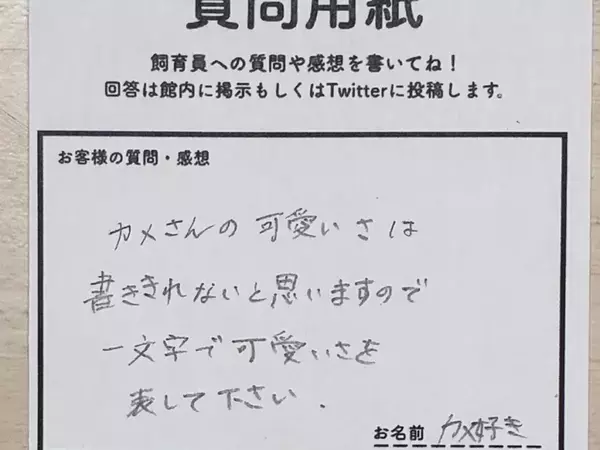 質問用紙
飼育員への質問や感想を書いてね！
回答は館内に掲示もしくはTwitterに投稿します。
お客様の質問・感想
カメさんの可愛いさは
書ききれないと思いますので
一文字で可愛いさを
表して下さい．
お名前 カメ好き